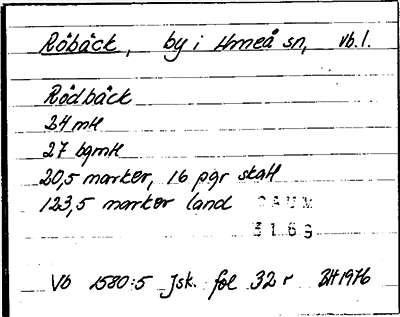 Röbäck, by i Umeå sn, Vb. l.
Rödbäck
24 mtl
27 bgmtl
20,5 marker, 16 pgr skatt
123,5 marker land
DAUM
3169
Vb 1580:5 Jsk. fol 32 r BH 1976